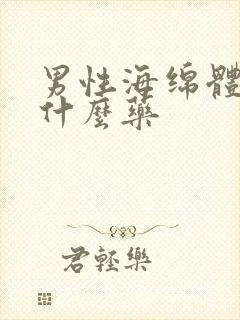 男性海绵體
什麼藥
君輕樂